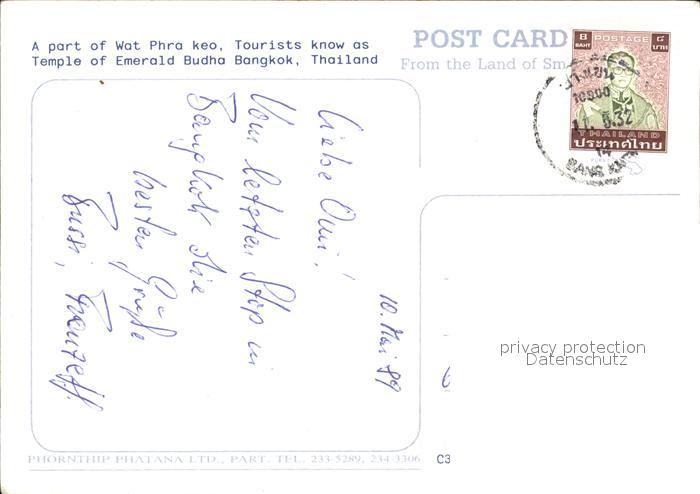 A part of Wat Phra keo, Tourists know as
Temple of Emerald Budha Bangkok, Thailand
POST CARD
From the Land of Sm
8 BAHT
POSTAGE
๘ บาท
THAILAND
ประเทศไทย
10500
10. Mai 89
Liebe Omi!
Vom letzten Stop in
Bangkok die
besten Grüße
Bussi,
privacy protection
Datenschutz
PHORNTHIP PHATANA LTD., PART. TEL. 233-5289, 234-3306
C3